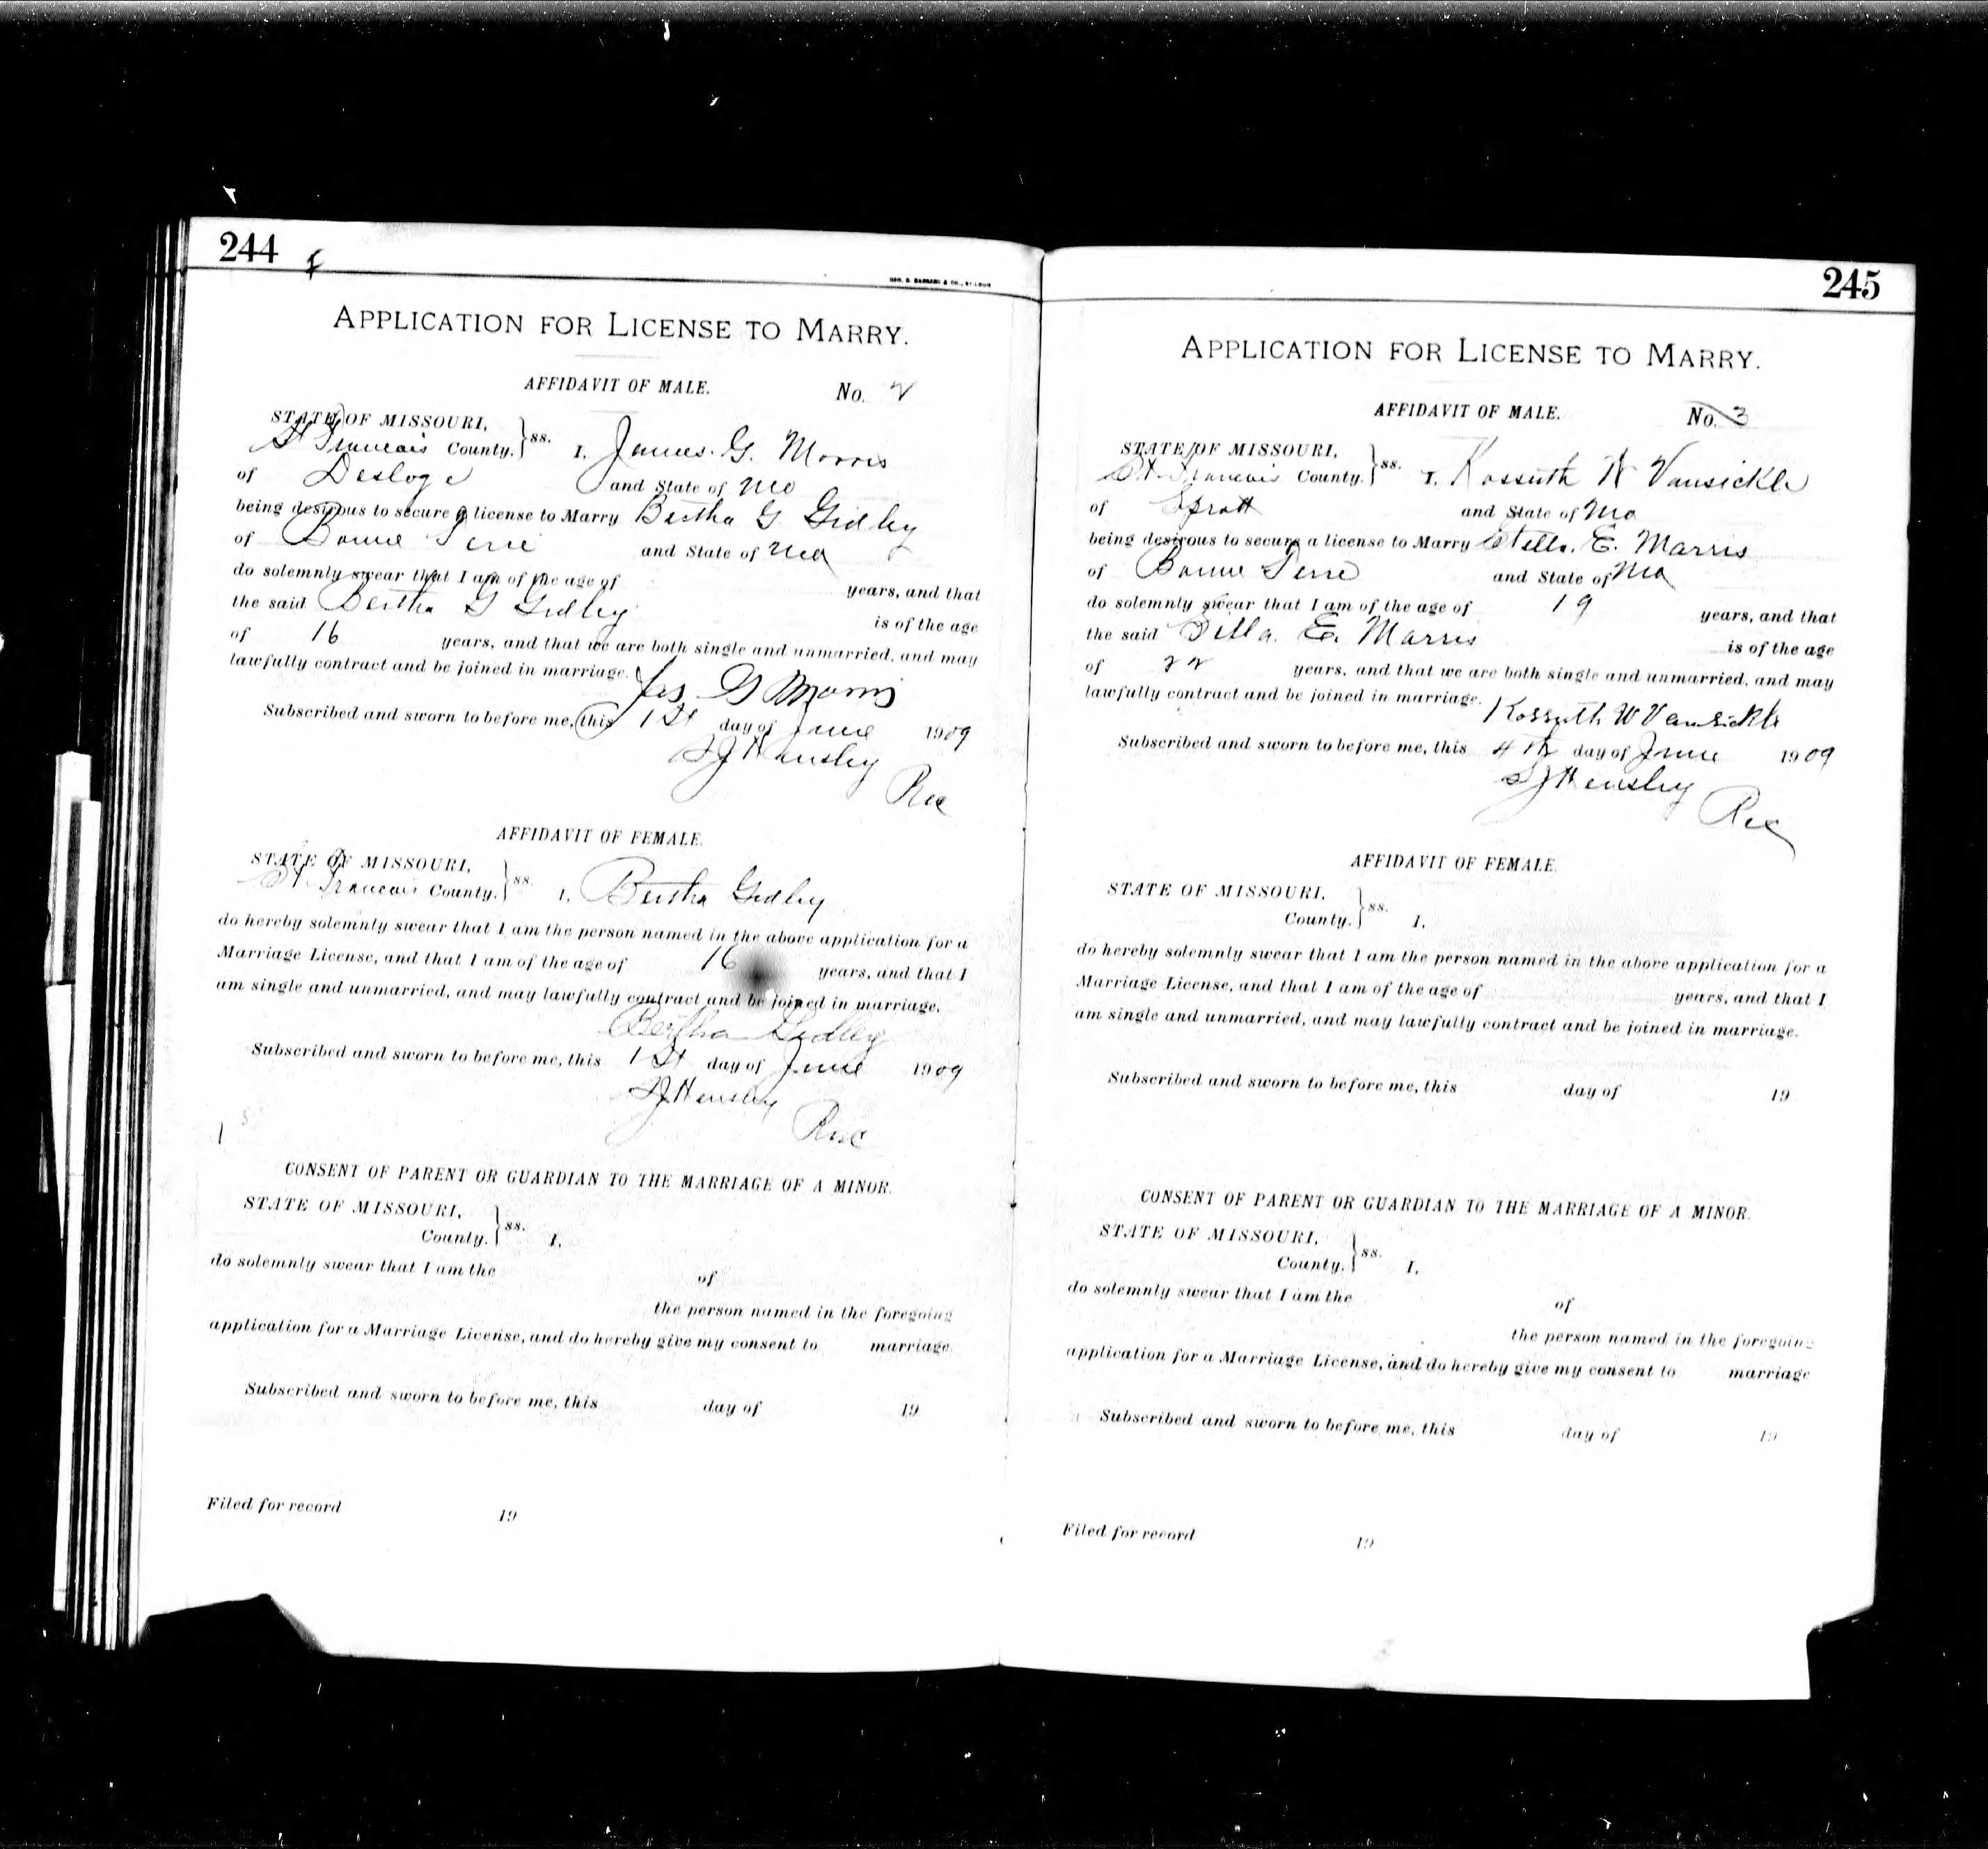 244
GEO. D. BARNARD & CO., ST. LOUIS
APPLICATION FOR LICENSE TO MARRY.
AFFIDAVIT OF MALE. No. 2
STATE OF MISSOURI,
St Francois County. } ss. I, James. G. Morris
of Desloge and State of Mo
being desirous to secure a license to Marry Bertha G. Gidley
of Bonne Terre and State of Mo
do solemnly swear that I am of the age of years, and that
the said Bertha G Gidley is of the age
of 16 years, and that we are both single and unmarried, and may
lawfully contract and be joined in marriage.
Jas G Morris
Subscribed and sworn to before me, this 1st day of June 1909
Hensley
Rec
AFFIDAVIT OF FEMALE.
STATE OF MISSOURI,
St Francois County. } ss. I, Bertha Gidley
do hereby solemnly swear that I am the person named in the above application for a
Marriage License, and that I am of the age of 16 years, and that I
am single and unmarried, and may lawfully contract and be joined in marriage.
Bertha Gidley
Subscribed and sworn to before me, this 1st day of June 1909
Hensley
Rec
CONSENT OF PARENT OR GUARDIAN TO THE MARRIAGE OF A MINOR.
STATE OF MISSOURI,
County. } ss. I,
do solemnly swear that I am the of
the person named in the foregoing
application for a Marriage License, and do hereby give my consent to marriage.
Subscribed and sworn to before me, this day of 19
Filed for record 19
245
APPLICATION FOR LICENSE TO MARRY.
AFFIDAVIT OF MALE. No. 3
STATE OF MISSOURI,
St. Francois County. } ss. I, Kossuth W Vansickle
of Sprott and State of Mo
being desirous to secure a license to Marry Stella. E. Marris
of Bonne Terre and State of Mo
do solemnly swear that I am of the age of 19 years, and that
the said Stella. E. Marris is of the age
of 22 years, and that we are both single and unmarried, and may
lawfully contract and be joined in marriage.
Kossuth W Vansickle
Subscribed and sworn to before me, this 4th day of June 1909
Hensley
Rec
AFFIDAVIT OF FEMALE.
STATE OF MISSOURI,
County. } ss. I,
do hereby solemnly swear that I am the person named in the above application for a
Marriage License, and that I am of the age of years, and that I
am single and unmarried, and may lawfully contract and be joined in marriage.
Subscribed and sworn to before me, this day of 19
CONSENT OF PARENT OR GUARDIAN TO THE MARRIAGE OF A MINOR.
STATE OF MISSOURI,
County. } ss. I,
do solemnly swear that I am the of
the person named in the foregoing
application for a Marriage License, and do hereby give my consent to marriage
Subscribed and sworn to before me, this day of 19
Filed for record 19